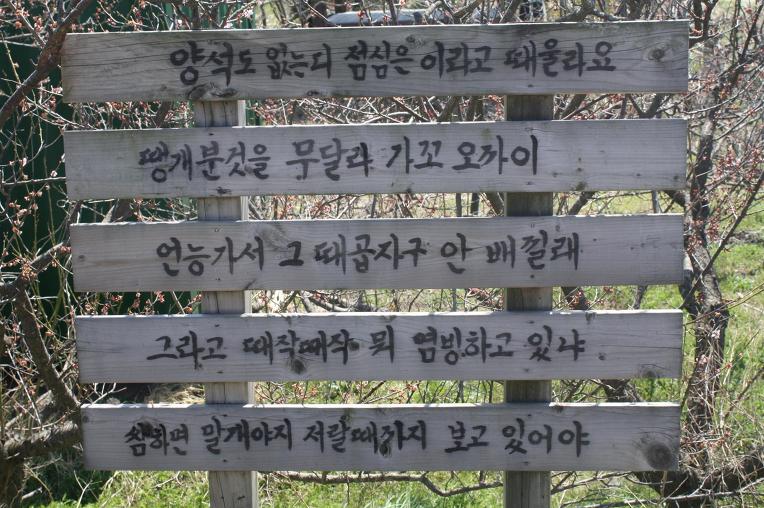 양석도 없는디 점심은 이라고 때울라요
땡개분것을 무달라 가꼬 오까이
언능가서 그 때곱자구 안 배낄래
그라고 때작때작 뭐 염병하고 있냐
쌈하면 말개야지 저랄때까지 보고 있어야